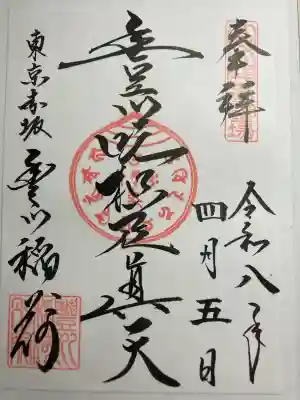 奉拝
令和八年
四月五日
豊川吒枳尼真天
東京赤坂 豊川稲荷